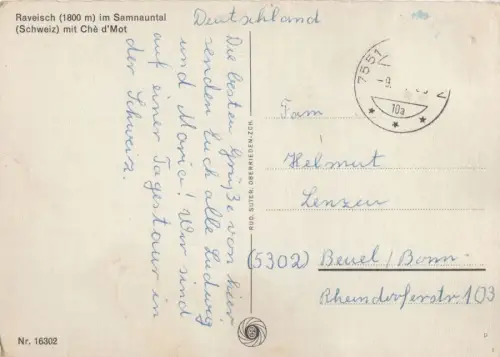 Raveisch (1800 m) im Samnauntal
(Schweiz) mit Chè d'Mot
Deutschland
Die besten Grüße von hier
senden Euch alle Ludwig
und Maria! Wir sind
auf einer Tagestour in
der Schweiz.
RUD. SUTER, OBERRIEDEN-ZCH.
7551
-9.
10a
Fam
Helmut
Lenzen
(5302) Beuel/Bonn
Rheindorferstr. 103
Nr. 16302